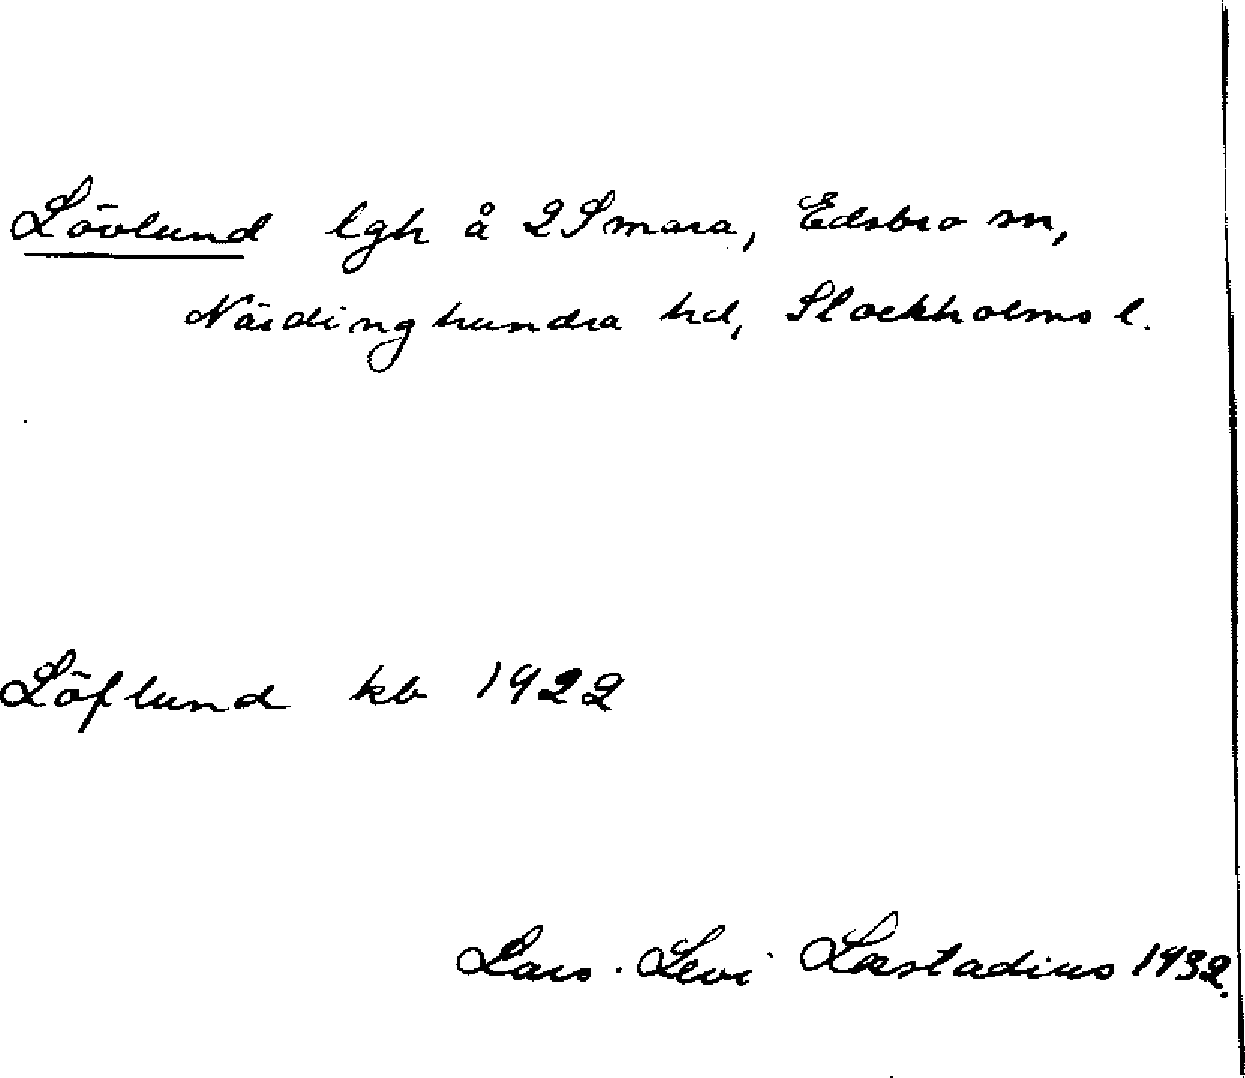 Lövlund lgh å 2 Smara, Edsbro sn,
Närdinghundra hd, Stockholms l.
Löflund kb 1922
Lars-Levi Læstadius 1932.